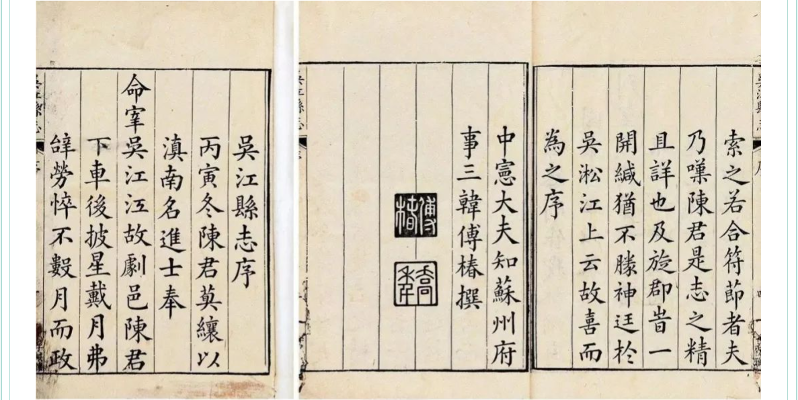 吳江縣志
序
吳江縣志序
丙寅冬陳君莫纕以
滇南名進士奉
命宰吳江江故劇邑陳君
下車後披星戴月弗
辤勞悴不數月而政
吳江縣志
序
索之若合符節者夫
乃嘆陳君是志之精
且詳也及旋郡旹一
開緘猶不勝神迋於
吳淞江上云故喜而
為之序
中憲大夫知蘇州府
事三韓傅椿撰
傅椿
吳江縣志